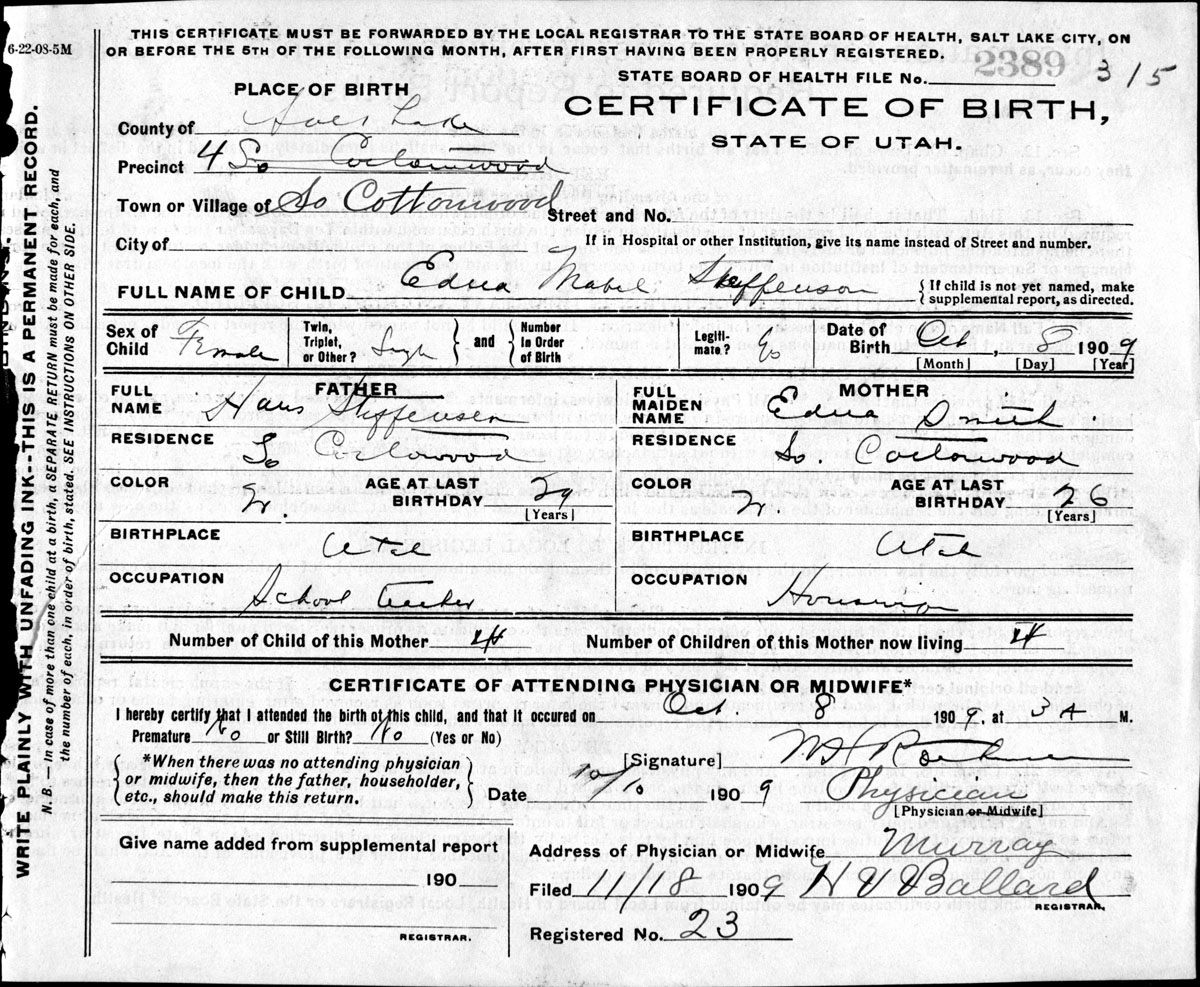 6-22-08-5M
THIS CERTIFICATE MUST BE FORWARDED BY THE LOCAL REGISTRAR TO THE STATE BOARD OF HEALTH, SALT LAKE CITY, ON
OR BEFORE THE 5TH OF THE FOLLOWING MONTH, AFTER FIRST HAVING BEEN PROPERLY REGISTERED.
STATE BOARD OF HEALTH FILE No. 2389 315
PLACE OF BIRTH
CERTIFICATE OF BIRTH,
STATE OF UTAH.
County of Salt Lake
Precinct 4 So Cottonwood
Town or Village of So Cottonwood Street and No.
City of If in Hospital or other Institution, give its name instead of Street and number.
FULL NAME OF CHILD Edna Mabel Steffensen { If child is not yet named, make supplemental report, as directed.
Sex of Child Female Twin, Triplet, or Other? Single } and { Number in Order of Birth Legiti-mate? Date of Birth Oct, 8 1909
[Month] [Day] [Year]
FATHER MOTHER
FULL NAME Hans Steffensen FULL MAIDEN NAME Edna Smith
RESIDENCE So Cottonwood RESIDENCE So. Cottonwood
COLOR W. AGE AT LAST BIRTHDAY 29 COLOR W. AGE AT LAST BIRTHDAY 26
[Years] [Years]
BIRTHPLACE Utah BIRTHPLACE Utah
OCCUPATION School teacher OCCUPATION Housewife
Number of Child of this Mother 4 Number of Children of this Mother now living 4
CERTIFICATE OF ATTENDING PHYSICIAN OR MIDWIFE*
I hereby certify that I attended the birth of this child, and that it occured on Oct. 8 1909, at 3 A M.
Premature No or Still Birth? No (Yes or No)
{ *When there was no attending physician or midwife, then the father, householder, etc., should make this return. }
[Signature]
Date 10/10 1909 Physician
[Physician or Midwife]
Give name added from supplemental report
Address of Physician or Midwife Murray
190
Filed 11/18 1909 H V Ballard
REGISTRAR.
REGISTRAR.
Registered No. 23
WRITE PLAINLY WITH UNFADING INK.--THIS IS A PERMANENT RECORD.
N. B. — In case of more than one child at a birth, a SEPARATE RETURN must be made for each, and
the number of each, in order of birth, stated. SEE INSTRUCTIONS ON OTHER SIDE.